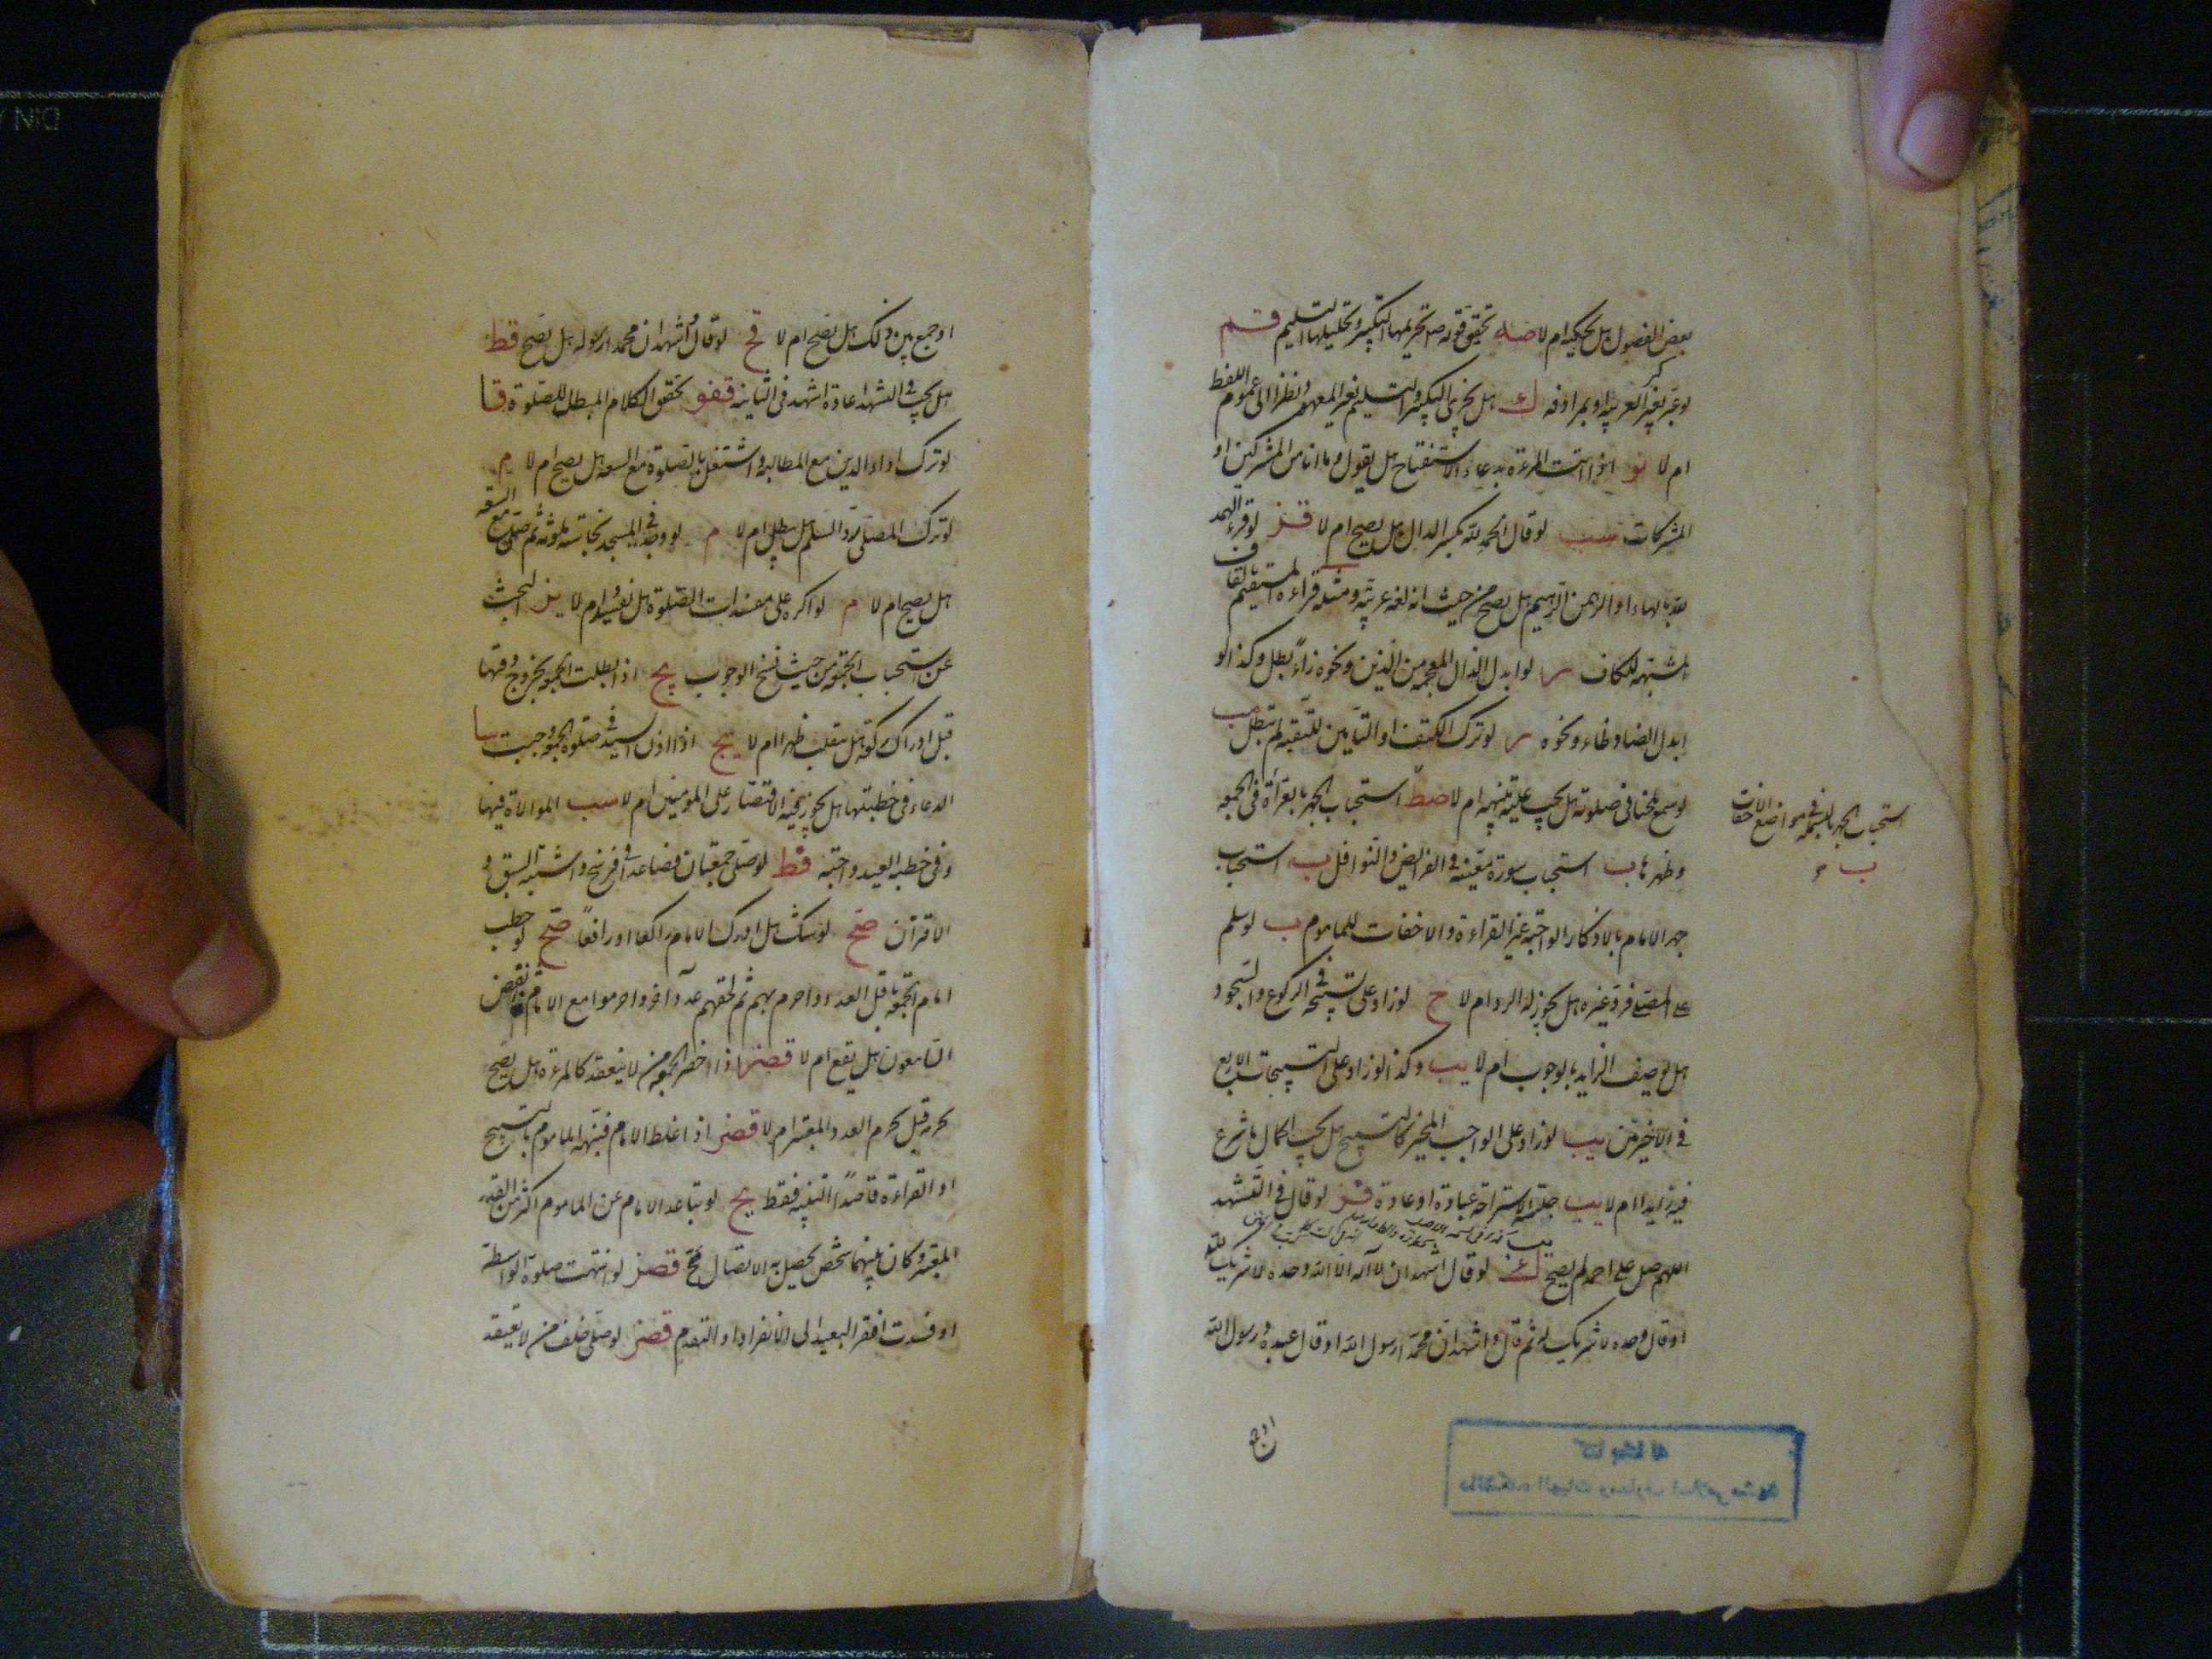 بعض الفصول هل يحكيه ام لا صه تحقيق قوله ص تحريمها التكبير وتحليلها التسليم قم
لو غير بغير العربية او بمرادفه هل يجزي التكبير والتسليم بغير المعهود نظرا الى عموم اللفظ
ام لا نو اذا اتت المرءة بدعاء الاستفتاح هل يقول وما انا من المشركين او
المشركات سب لو قال الحمد لله بكسر الدال هل يصح ام لا قز لو قرء الهمد
لله بالهاء او الرهمن الرهيم هل يصح من حيث انه لغة عربية ومثله قراءة المستقيم بالقاف
المشتبهة للكاف لو ابدل الذال المعجمة من الذين ونحوه زاءً بطل وكذا لو
ابدل الضاد ظاء ونحوه لو ترك الكتف او التأمين للتقية لم تبطل مب
لو سمع لحنا في صلوته هل يجب عليه تنبيهه ام لا ضط استحباب الجهر بالقراءة في الجمعة
وظهرها ب استحباب سورة معينة في الفرايض والنوافل ب استحباب
جهر الامام بالاذكار الواجبة غير القراءة والاخفات للماموم ب لو سلم
على المصلي فرد غيره هل يجوز له الرد ام لا ح لو زاد على تسبيحة في الركوع والسجود
هل يوصف الزايد بالوجوب ام لا يب وكذا لو زاد على التسبيحات الاربع
في الاخيرتين يب لو زاد على الواجب المخير كالتسبيح هل يجب اكمال ما شرع
فيه زايدا ام لا يب جلسة الاستراحة عبادة او عادة قز لو قال في التشهد
اللهم صل على احمد لم يصح لو قال اشهد ان لا اله الا الله وحده لا شريك لله
او قال وحده لا شريك له ثم قال واشهد ان محمدا رسول الله او قال عبده ورسول الله
استحباب الجهر بالبسملة في مواضع الاخفات
ب
اوجمع
او جمع بين ذلك هل يصح ام لا قح لو قال اشهد ان محمدا رسوله هل يصح قط
هل يجب في التشهد اعادة اشهد في الثانية قفو تحقق الكلام المبطل للصلوة قا
لو ترك اداء الدين مع المطالبة واشتغل بالصلوة مع السعة هل يصح ام لا م
لو ترك المصلي رد السلم هل يبطل ام لا م لو وجد في المسجد نجاسة ملوثة ثم صلى مع السعة
هل يصح ام لا م لو اكره على مفسدات الصلوة هل تفسد ام لا يز البحث
عن استحباب الجمعة من حيث نسخ الوجوب يح اذا بطلت الجمعة بخروج وقتها
قبل ادراك ركعة هل ينقلب ظهرا ام لا يح اذا اذن السيد في صلوة الجمعة وجبت سا
الدعاء في خطبتها هل يجوز فيه الاقتصار على المومنين ام لا سب الموالاة فيها
وفي خطبة العيد واجبة قط لو صلى جمعتان فصاعدا في فرسخ واشتبه السبق و
الاقتران صح لو شك هل ادرك الامام راكعا او رافعا صح لو خطب
امام الجمعة باقل العدد واحرم بهم ثم لحقهم عدد آخر واحرموا مع الامام ثم انفض
السامعون هل يقع ام لا قصز اذا حضر الجمعة من لا ينعقد كالمرءة هل يصح
تحرمه قبل تحرم العدد المعتبر ام لا قصز اذا غلط الامام فنبهه الماموم بالتسبيح
او القراءة قاصدا التنبيه فقط يح لو تباعد الامام عن الماموم اكثر من القدر
المعتبر وكان بينهما شخص يحصل به الاتصال قح قصز لو انتهت صلوة الواسطة
او فسدت افتقر البعيد الى الانفراد او التقدم قصز لو صلى خلف من لا يعتقد